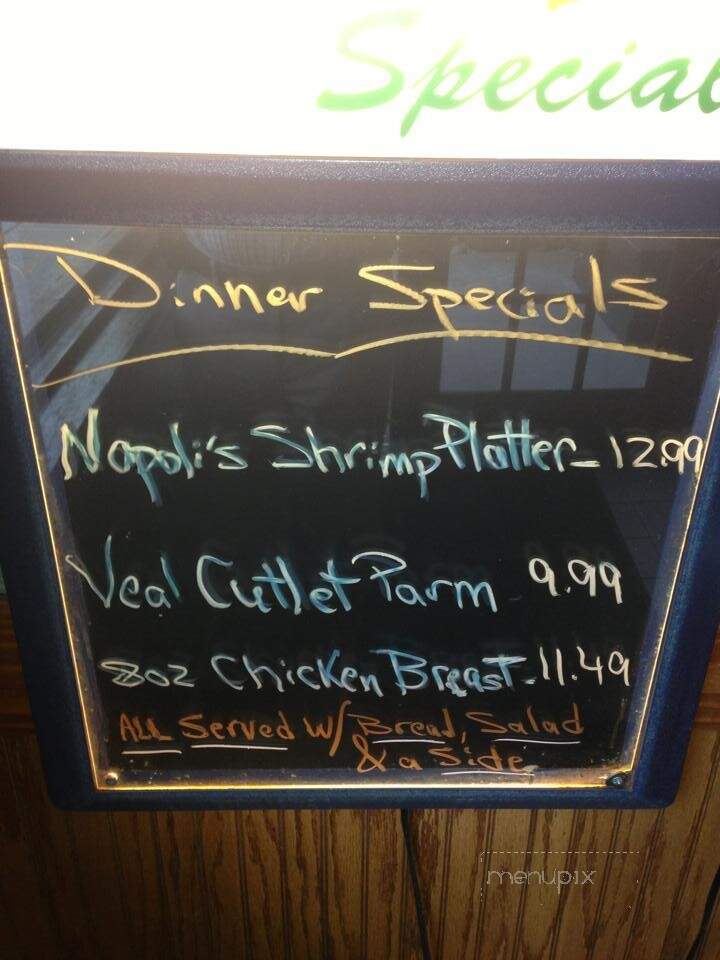 Special
Dinner Specials
Napoli's Shrimp Platter - 12.99
Veal Cutlet Parm 9.99
8oz Chicken Breast - 11.49
ALL Served w/ Bread, Salad
& a Side
menupix